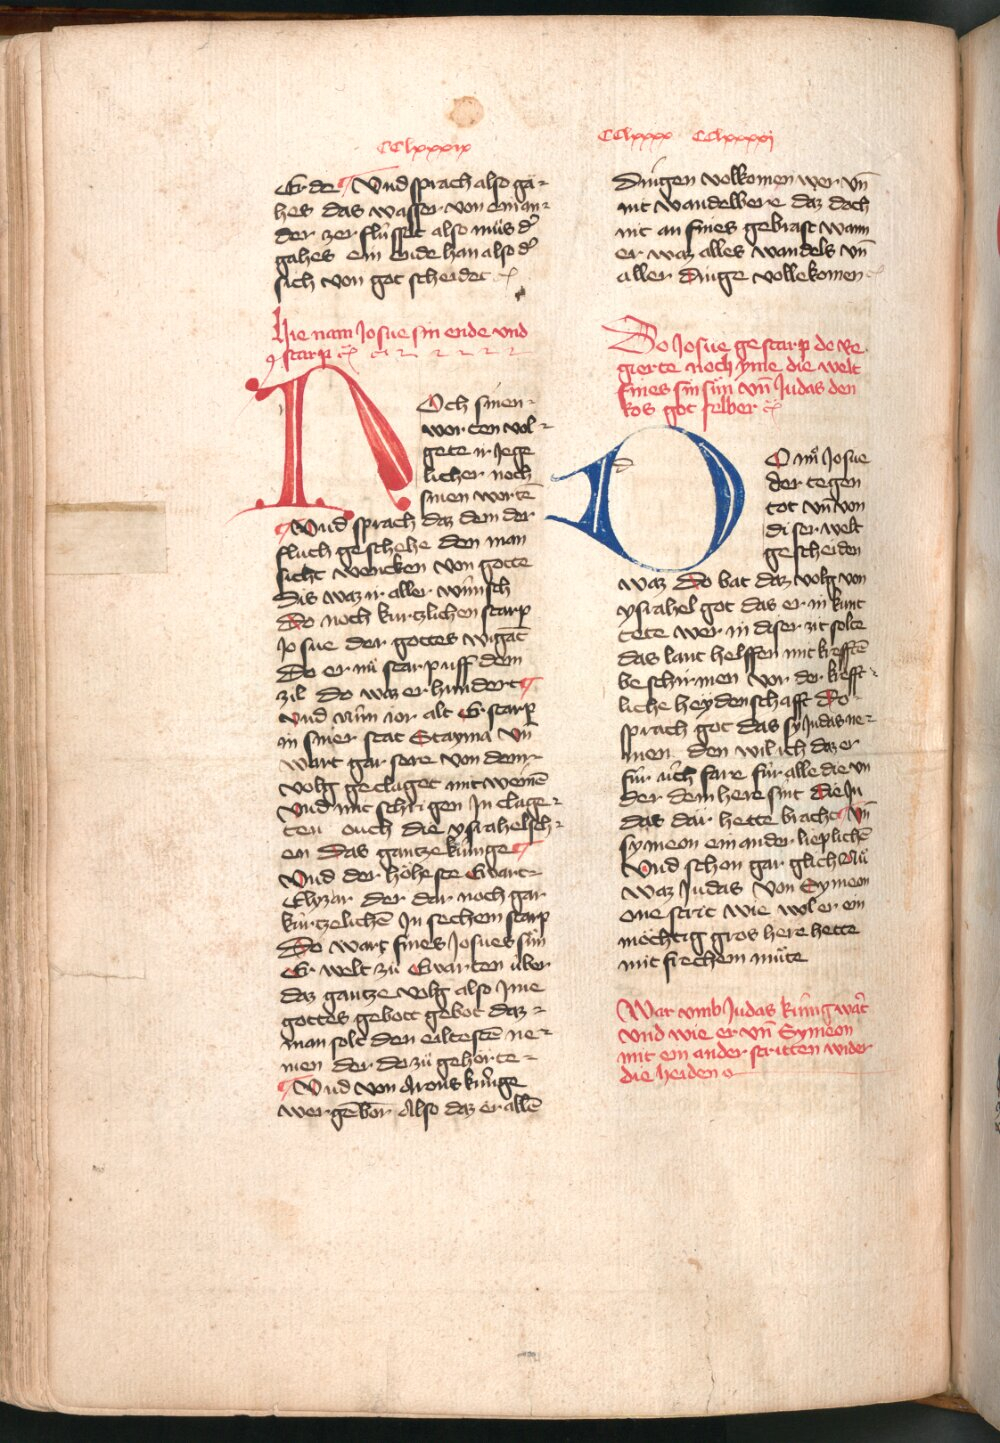 CClxxxix
Er do Und sprach also gă-
hes das wasser von ein an-
der zer flússet also můs dˀ
gahes ein ende han also dˀ
sich von got scheidet
Hie nam Josue sin ende vnd
starp
Noch sinen
worten vol-
gete ir Jege
licher noch
sinen wortē
Und sprach daz dem der
fluch geschehe den man
sicht wencken von gotte
Dis waz ir aller wúnsch
Do noch kurtzlichen starp
Josue der gottes wigāt
Do er nů starp uff dem
zil do waz er hundert
Und nún ior alt Er starp
in siner stat Etayma vn̄
wart gar sere von dem
volg geclaget mit weinē
Und mit schrigen In clage-
ten ouch die ysrahelsch-
en Das gantze kúnge
Und der höheste Ewart
Elyzar der dar noch gar
kúrtzelichē In sechem starp
Do wart fines Josues sún
Er welt zů Ewarten úber
daz gantze volg also Ime
gottes gebott gebot daz
man solt den eiltestē ne-
men der do zů gehörte
Und von Arons kúnge
wer gebōr Also daz er allē
CClxxxx CClxxxxj
Dingen volkomen wer vn̄
nit wandelbere daz doch
nit an fines gebrast wann
er waz alles wandels vn̄
aller dinge vollekomen
Do Josue gestarp do re
gierte noch yme die welt
fines sin sún vn̄ Judas den
kos got selber
Do nů Josue
der tegen
tot vn̄ von
diser welt
gescheiden
waz Do bat daz volg von
ysrahel got das er in kunt
tete wer in diser zit solte
das lant helffen mit krefftē
beschirmen vor der krefft-
liche heydenschafft Do
sprach got das sy Judas ne-
men den wil ich daz er
fúr úch fare fúr alle die vn
der dem here sint die Ju
das dar hette bracht Vn̄
symeon ein ander lieplichē
Und schon gar glich Nů
waz Judas von Symeon
one strit wie wol er ein
möchtig gros here hette
mit frechem můte
War vmb Judas kúnig wart
vnd wie er vn̄ Symeon
mit ein ander stritten wider
die heiden